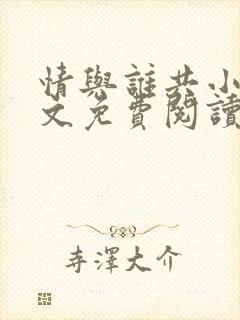 情與誰共小
文免費閱讀
寺澤大介